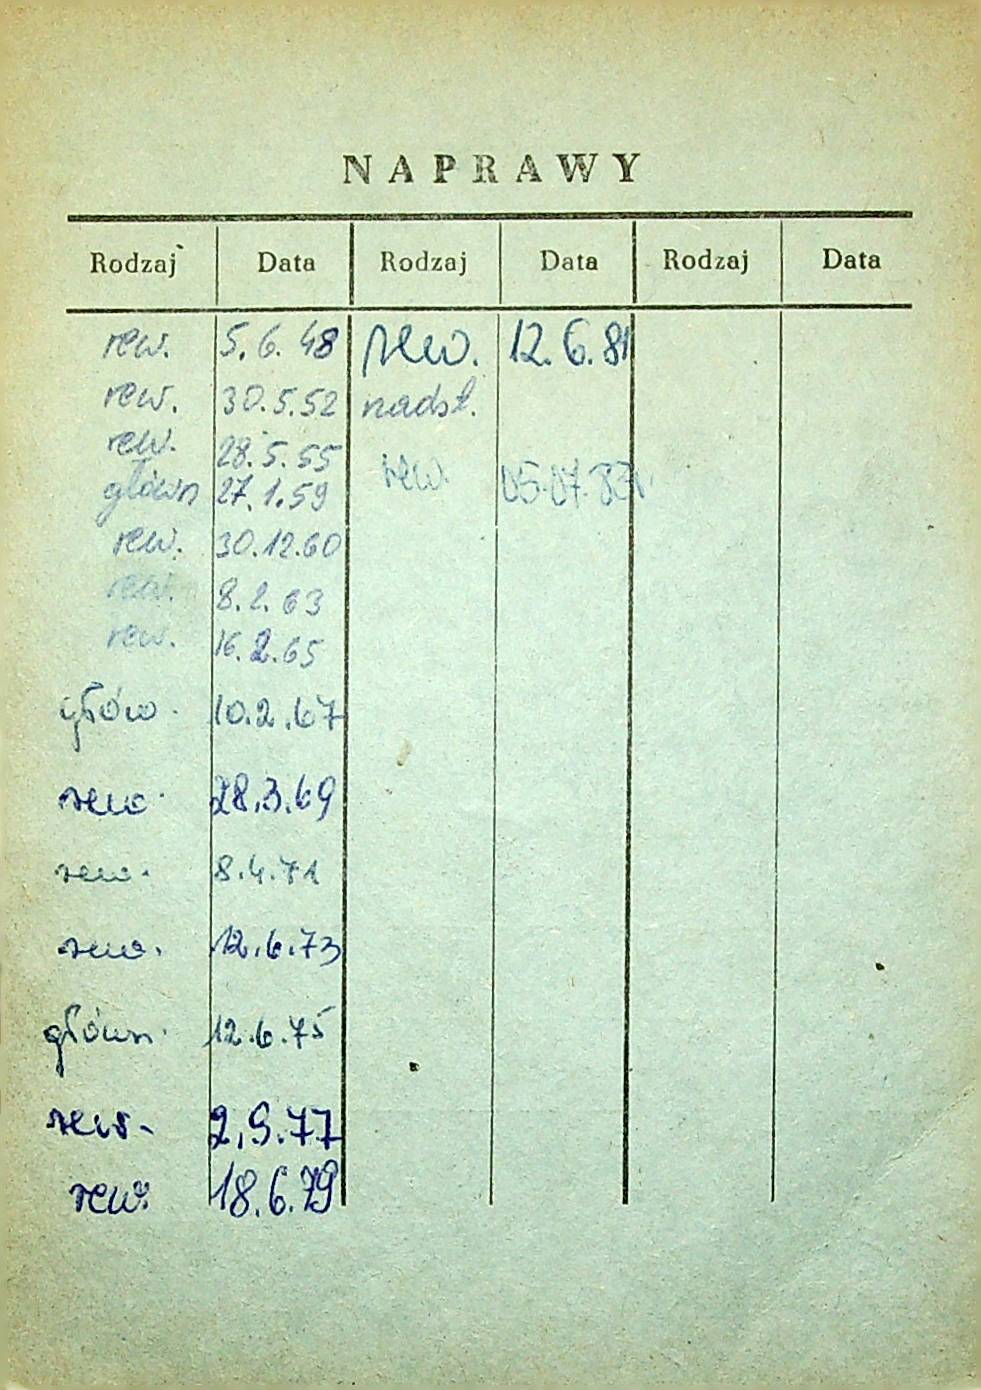 NAPRAWY
Rodzaj Data Rodzaj Data Rodzaj Data
rew. 5.6.48 rew. 12.6.81
rew. 30.5.52 nadst.
rew. 28.5.55
główn 27.1.59 rew. 05.07.83r.
rew. 30.12.60
rew. 8.2.63
rew. 16.2.65
głów. 10.2.67
rew. 28.3.69
rew. 8.4.71
rew. 12.6.73
główn. 12.6.75
rew. 2.9.77
rew. 18.6.79